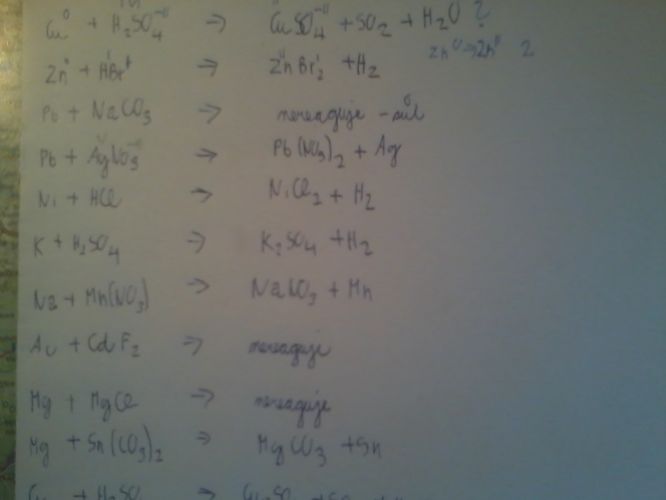 Cu⁰ + H₂SO₄⁻ᴵᴵ → CuSO₄⁻ᴵᴵ + SO₂ + H₂O ?
Zn⁰ → Znᴵᴵ 2
Zn⁰ + HᴵBr → ZnᴵᴵBr₂ + H₂
Pb + NaCO₃ → nereaguje - sůl
Pb + AgNO₃ → Pb(NO₃)₂ + Ag
Ni + HCl → NiCl₂ + H₂
K + H₂SO₄ → K₂SO₄ + H₂
Na + Mn(NO₃) → NaNO₃ + Mn
Au + CdF₂ → nereaguje
Mg + MgCl → nereaguje
Mg + Sn(CO₃)₂ → MgCO₃ + Sn